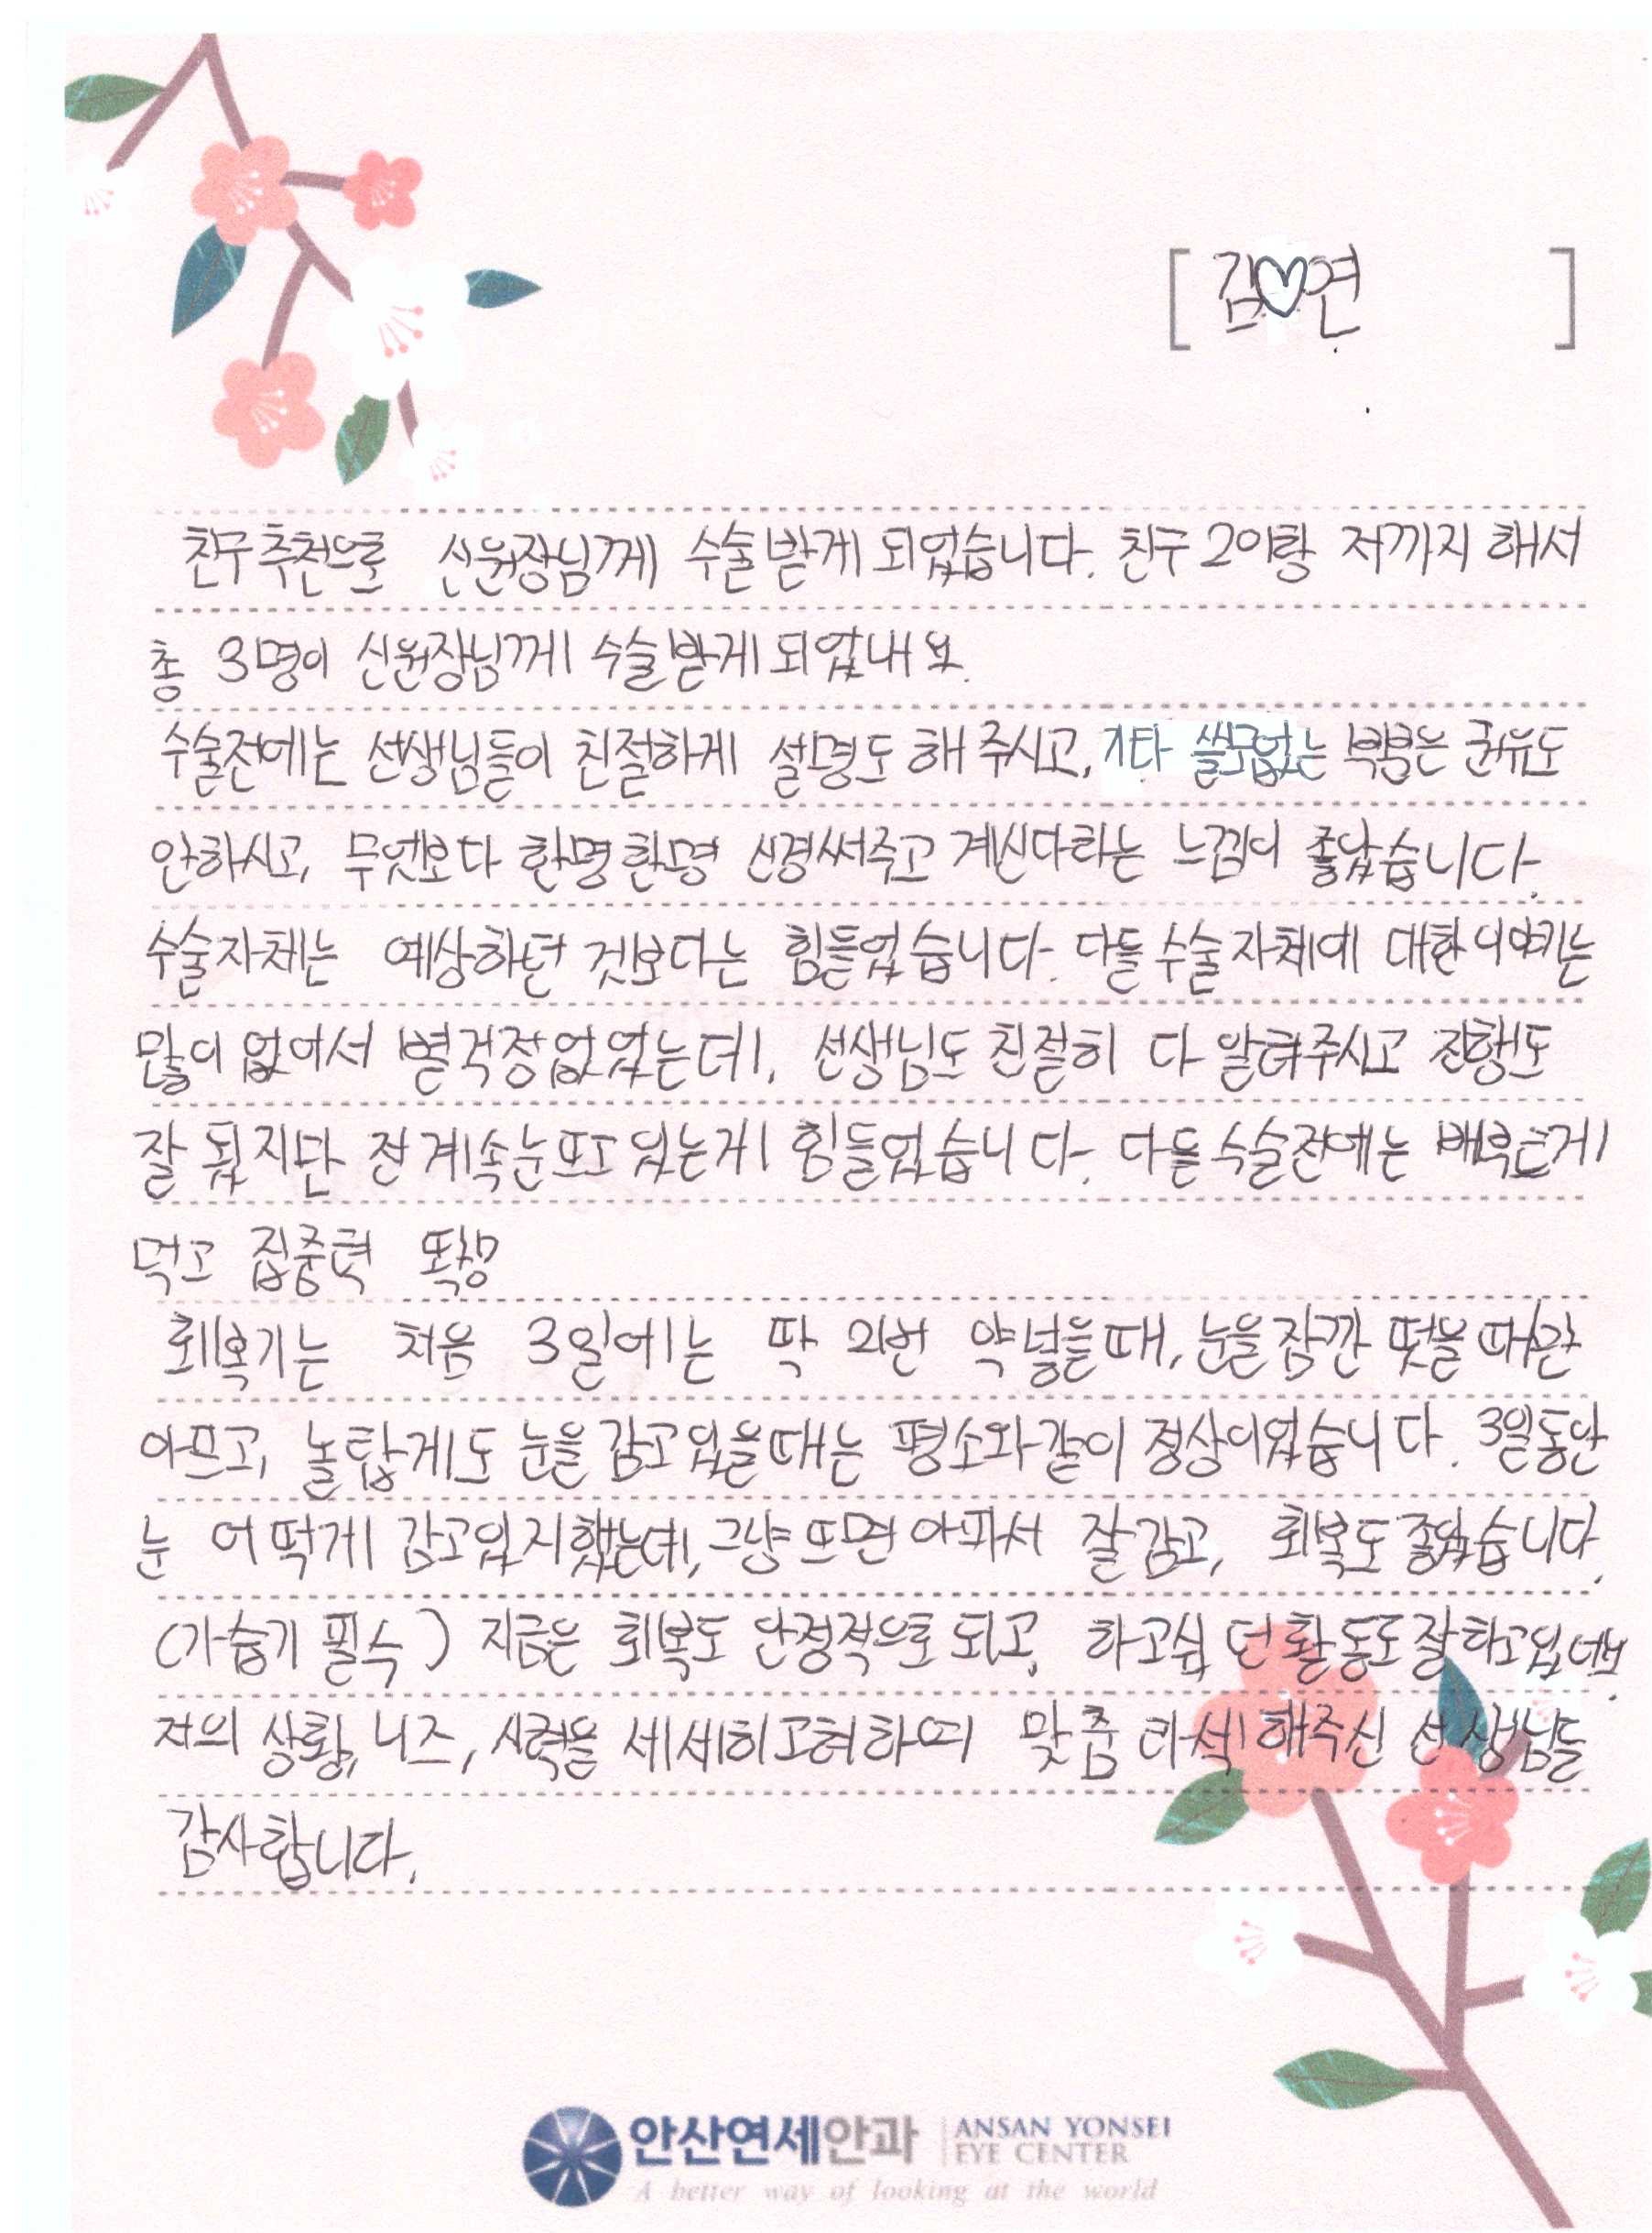 [ 김♡연 ]
친구추천으로 신원장님께 수술받게 되었습니다. 친구 2이랑 저까지 해서
총 3명이 신원장님께 수술받게 되었내요.
수술전에는 선생님들이 친절하게 설명도 해 주시고, 기타 쓸모없는 부분은 권유도
안하시고, 무엇보다 한명한명 신경써주고 계신다라는 느낌이 좋았습니다.
수술자체는 예상하던 것보다는 힘들었습니다. 다들 수술자체에 대한 이야기는
많이 없어서 별걱정없었는데, 선생님도 친절히 다 알려주시고 진행도
잘 됬지만 전 계속눈뜨고 있는게 힘들었습니다. 다들 수술전에는 배부르게
먹고 집중력 뽝
회복기는 처음 3일에는 딱 2번 약 넣을때, 눈을 잠깐 떳을 때만
아프고, 놀랍게도 눈을 감고있을때는 평소와같이 정상이었습니다. 3일동안
눈 어떻게 감고있지했는데, 그냥 뜨면 아파서 잘감고, 회복도 좋았습니다.
(가습기 필수) 지금은 회복도 안정적으로 되고, 하고싶던 활동도 잘하고있네요.
저의 상황, 니즈, 시력을 세세히고려하여 맞춤 라섹 해주신 선생님들
감사합니다.
안산연세안과 ANSAN YONSEI
EYE CENTER
A better way of looking at the world